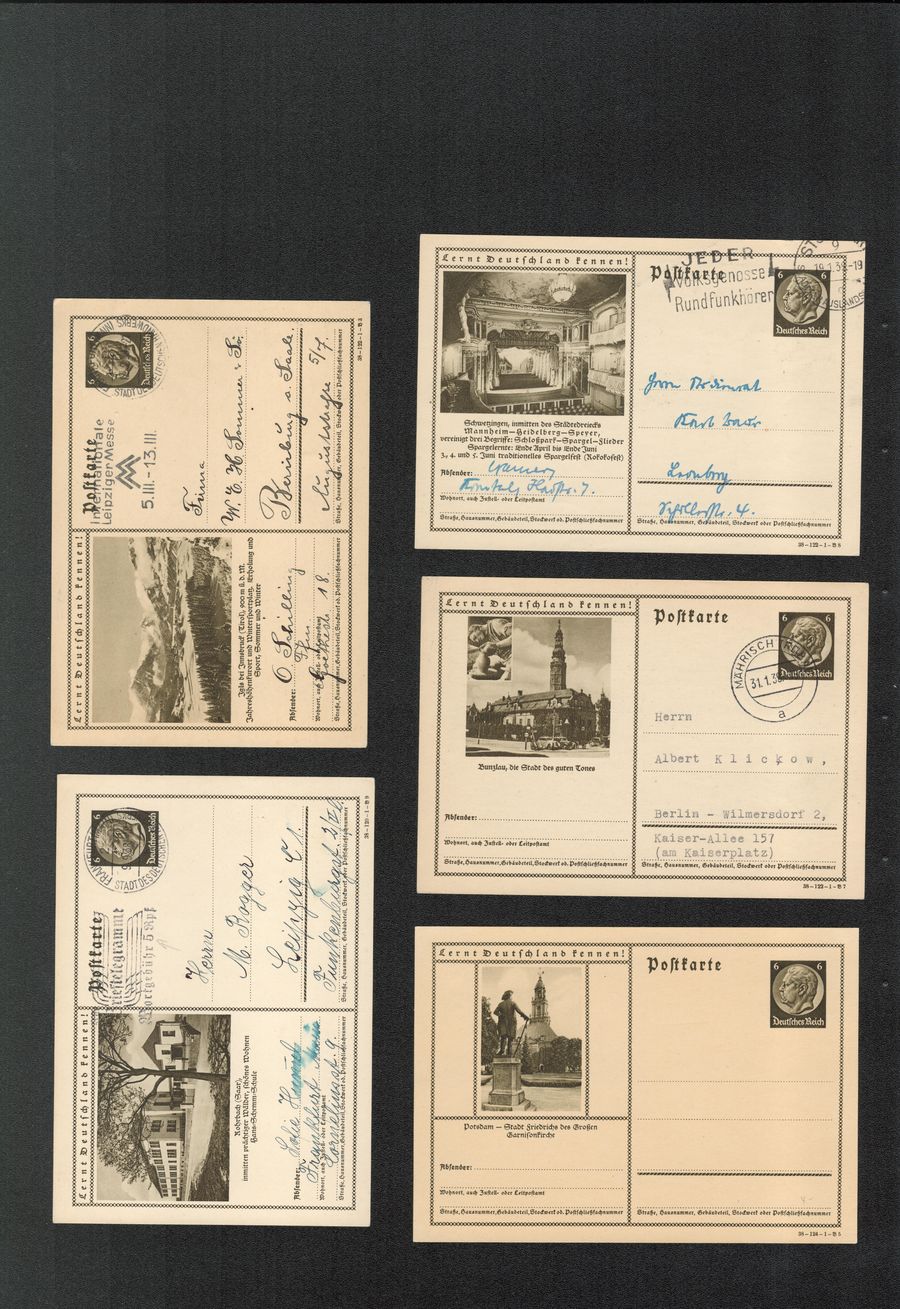 Lernt Deutschland kennen!
Postkarte
6
Deutsches Reich
STADT DES DEUTSCHEN HANDWERKS
Internationale
Leipziger Messe
5.III. - 13.III.
Firma
W. E. H. Sommer
Bernburg a. Saale.
Auguststraße 5/7.
Straße, Hausnummer, Gebäudeteil, Stockwerk oder Postschließfachnummer
38-122-1-B3
Igls bei Innsbruck (Tirol), 900 m ü. d. M.
Jahreshöhenkurort und Wintersportplatz. Erholung und
Sport, Sommer und Winter
Absender: O. Schilling
Ffm
Wohnort, auch Zustell- oder Leitpostamt
Goethestr. 18.
Straße, Hausnummer, Gebäudeteil, Stockwerk od. Postschließfachnummer
Lernt Deutschland kennen!
Postkarte
JEDER
Volksgenosse
Rundfunkhörer
19.1.38-19
6 6
Deutsches Reich
Schwetzingen, inmitten des Städtedreiecks
Mannheim–Heidelberg–Speyer,
vereinigt drei Begriffe: Schloßpark–Spargel–Flieder
Spargelernte: Ende April bis Ende Juni
3., 4. und 5. Juni traditionelles Spargelfest (Rokokofest)
Absender:
Wohnort, auch Zustell- oder Leitpostamt
Straße, Hausnummer, Gebäudeteil, Stockwerk od. Postschließfachnummer
Leonberg
Straße, Hausnummer, Gebäudeteil, Stockwerk oder Postschließfachnummer
38-122-1-B6
Lernt Deutschland kennen!
Postkarte
6
Deutsches Reich
MÄHRISCH
31.1.3
a
Bunzlau, die Stadt des guten Tones
Absender:
Wohnort, auch Zustell- oder Leitpostamt
Straße, Hausnummer, Gebäudeteil, Stockwerk od. Postschließfachnummer
Herrn
Albert K l i c k o w ,
Berlin - Wilmersdorf 2,
Kaiser-Allee 157
(am Kaiserplatz)
Straße, Hausnummer, Gebäudeteil, Stockwerk oder Postschließfachnummer
38-122-1-B7
Lernt Deutschland kennen!
Postkarte
6
Deutsches Reich
STADT DES DEUTSCHEN
Brieftelegramme
Wortgebühr 5 Rpf
Herrn
M. Rogger
Leipzig C 1.
Funkenburgstr.
Straße, Hausnummer, Gebäudeteil, Stockwerk oder Postschließfachnummer
38-120-1-B9
Rohrbach (Saar),
inmitten prächtiger Wälder, schönes Wohnen
Hans-Schemm-Schule
Absender:
Frankfurt
Wohnort, auch Zustell- oder Leitpostamt
Corneliusstr. 9.
Straße, Hausnummer, Gebäudeteil, Stockwerk od. Postschließfachnummer
Lernt Deutschland kennen!
Postkarte
6 6
Deutsches Reich
Potsdam – Stadt Friedrichs des Großen
Garnisonkirche
Absender:
Wohnort, auch Zustell- oder Leitpostamt
Straße, Hausnummer, Gebäudeteil, Stockwerk od. Postschließfachnummer
Straße, Hausnummer, Gebäudeteil, Stockwerk oder Postschließfachnummer
38-124-1-B5